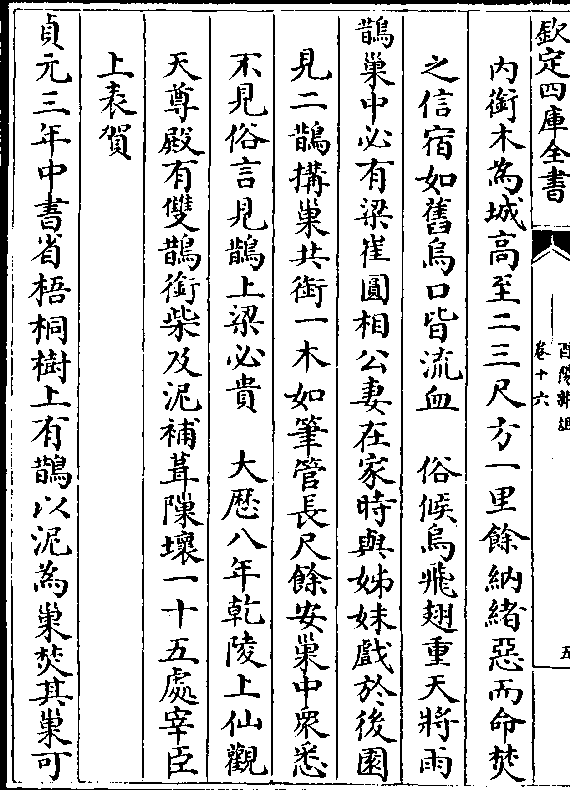 欽定四庫全書
酉陽雜俎
卷十六
五
內銜木為城高至二三尺方一里餘納緒惡而命焚
之信宿如舊烏口皆流血　俗候烏飛翅重天將雨
鵲巢中必有梁崔圓相公妻在家時與姊妹戲於後園
見二鵲搆巢共銜一木如筆管長尺餘安巢中衆悉
不見俗言見鵲上梁必貴　大歷八年乾陵上仙觀
天尊殿有雙鵲銜柴及泥補葺隟壞一十五處宰臣
上表賀
貞元三年中書省梧桐樹上有鵲以泥為巢焚其巢可